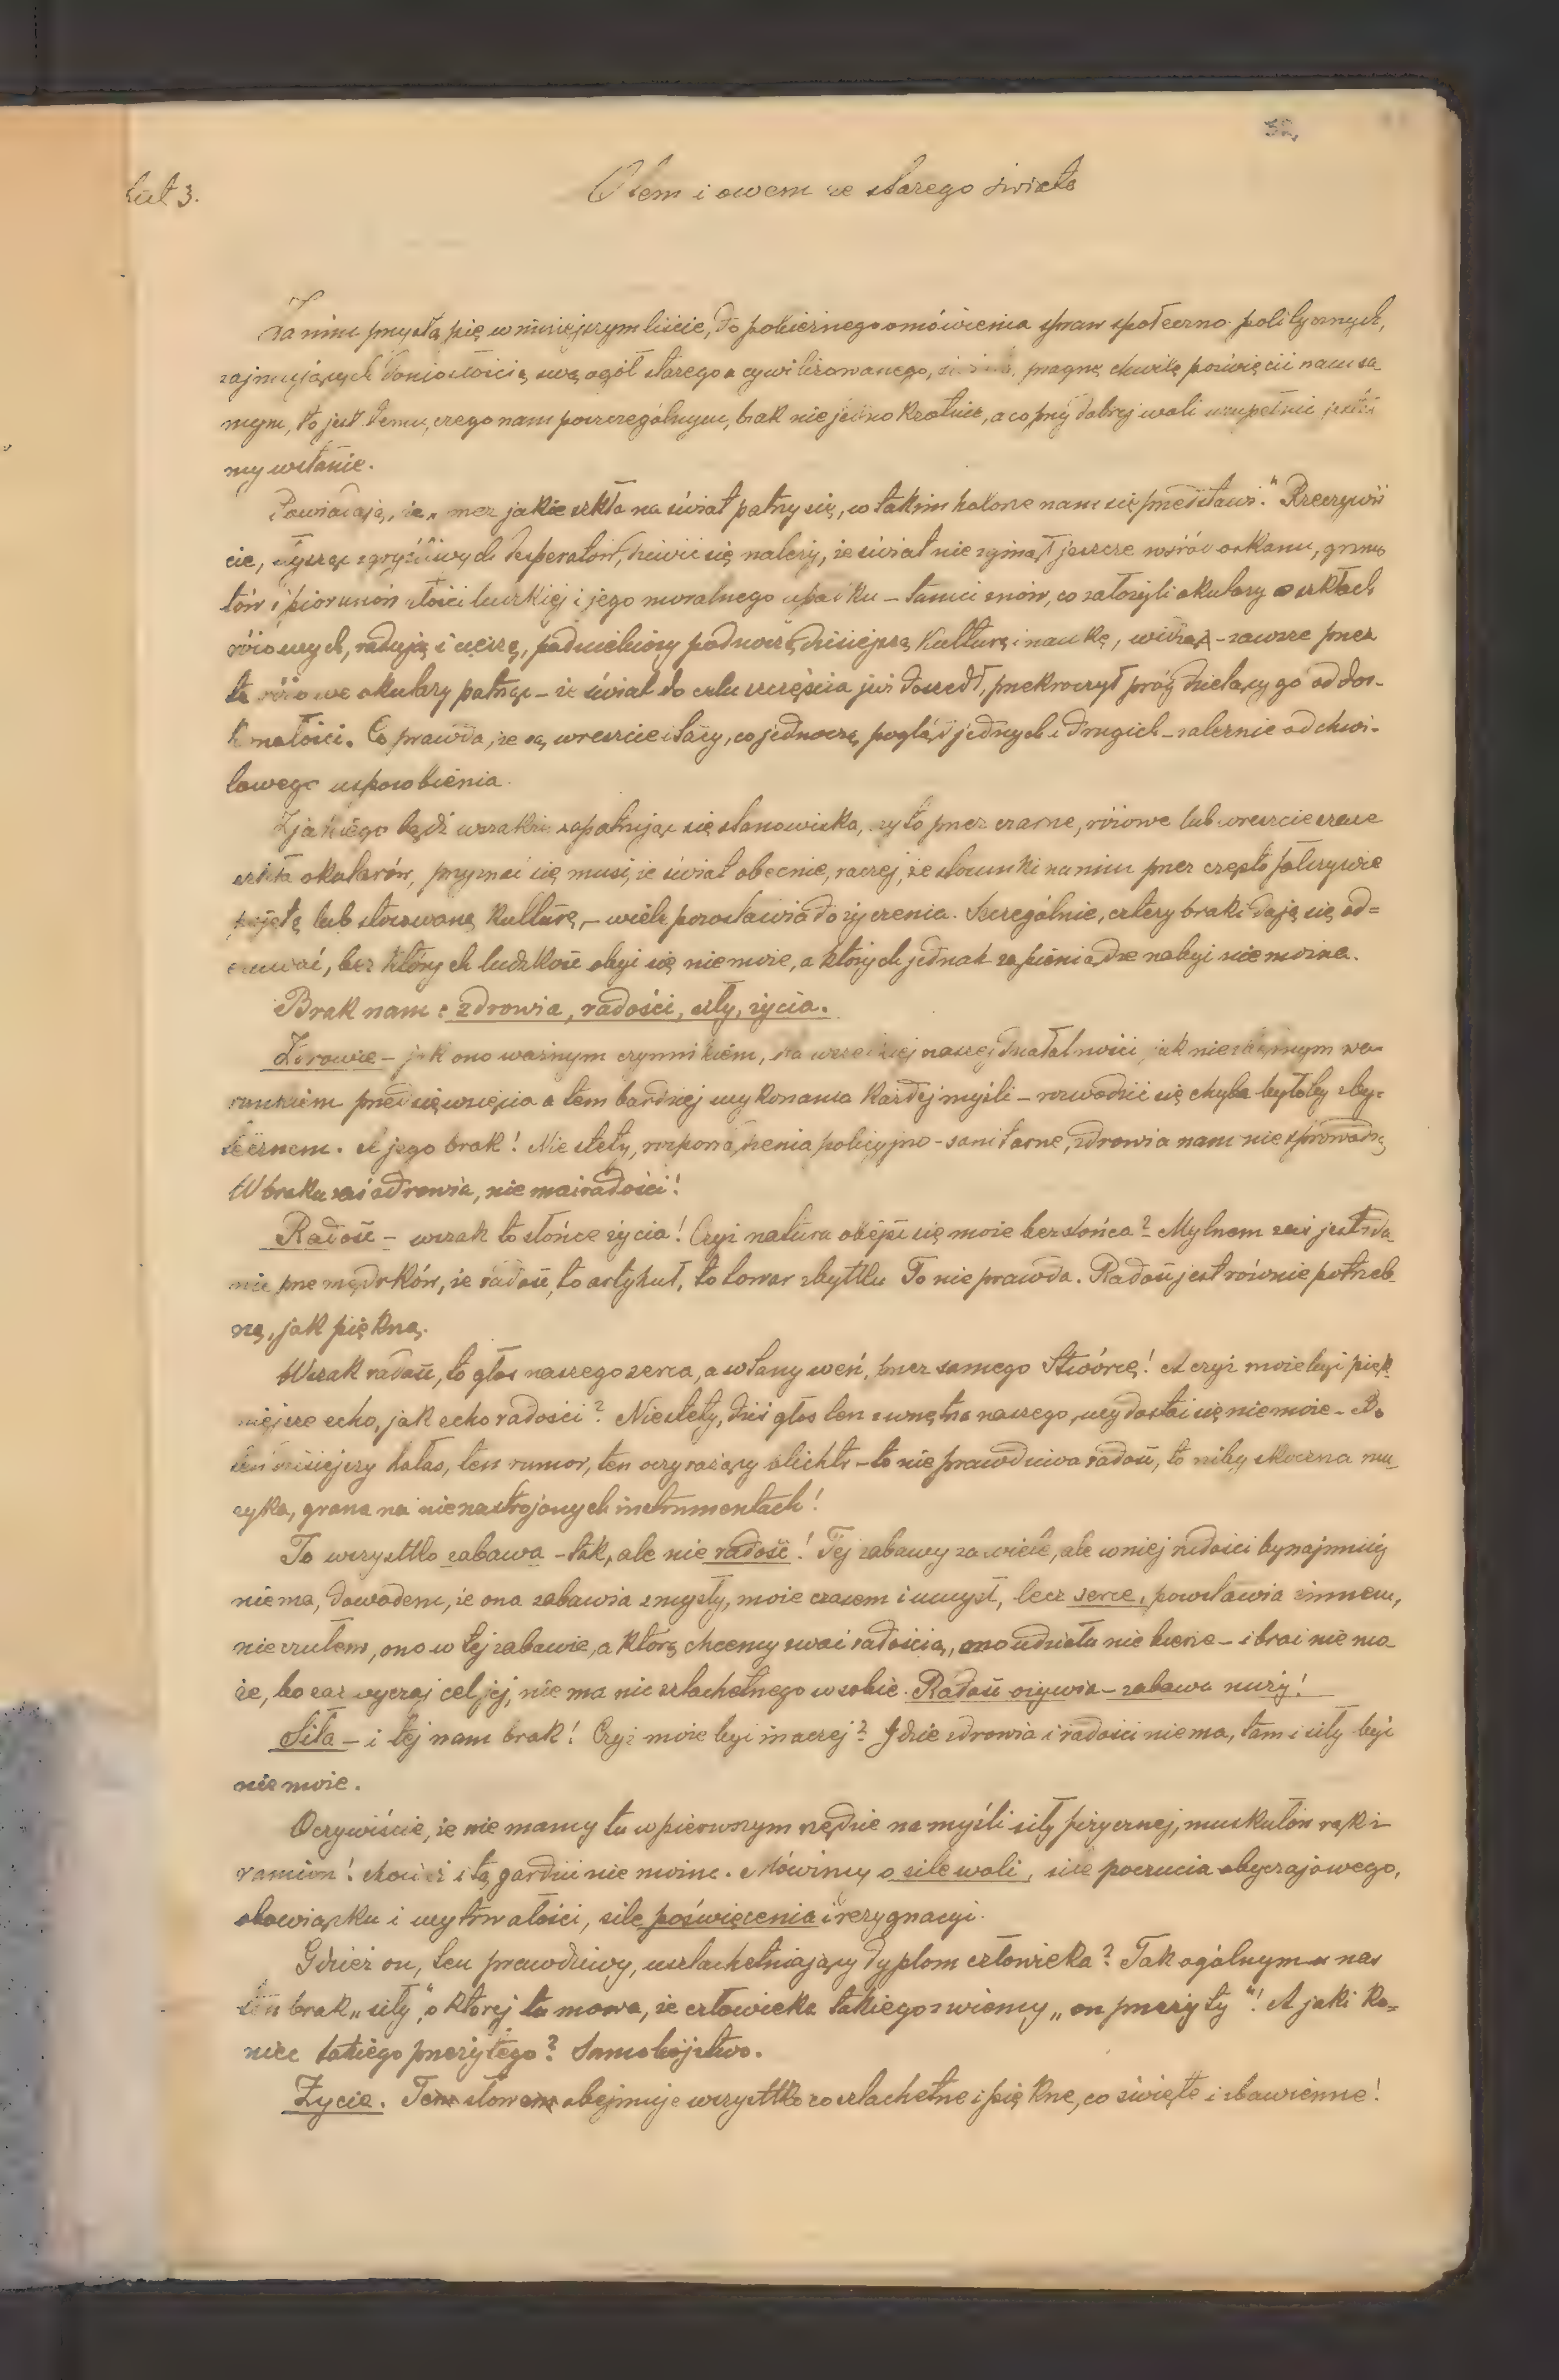 32,
List 3.
O tem i owem ze starego świata
Zanim przystąpię w niniejszym liście, do pobieżnego omówienia spraw społeczno politycznych,
zajmujących doniosłością swą ogół starego a cywilizowanego, pragnę chwilę poświęcić nam sa-
mym, to jest temu, czego nam poszczególnym, brak niejednokrotnie, a co przy dobrej woli uzupełnić jesteś
my wstanie.
Powiadają, że „przez jakie szkła na świat patrzy się, w takim kolorze nam się przedstawi." Rzeczywiś
cie, słysząc zgryźliwych desperatów, dziwić się należy, że świat nie zginął jeszcze wśród orkanu, grzmo
tów i piorunów złości ludzkiej i jego moralnego upadku – tamci znów, co założyli okulary o szkłach
różowych, radują i cieszą, pod niebiosy podnoszą dzisiejszą kulturę i naukę, widząc – zawsze przez
te różowe okulary patrząc – że świat do celu szczęścia już doszedł, przekroczył próg dzielący go od dos-
konałości. Co prawda, że są wreszcie i tacy, co jednoczą pogląd jednych i drugich – zależnie od chwi-
lowego usposobienia.
Z jakiego bądź wszakże zapatrując się stanowiska, czy to przez czarne, różowe lub wreszcie szare
szkła okularów, przyznać się musi, że świat obecnie, raczej, że stosunki na nim przez często fałszywie
pojętą lub stosowaną kulturę, – wiele pozostawia do życzenia. Szczególnie, cztery braki dają się od=
czuwać, bez których ludzkość obyć się nie może, a których jednak za pieniądze nabyć nie można.
Brak nam: zdrowia, radości, siły, życia.
Zdrowie – jak ono ważnym czynnikiem, dla wszelkiej naszej działalności, jak niezbędnym wa-
runkiem przedsięwzięcia a tem bardziej wykonania każdej myśli – rozwodzić się chyba byłoby zby-
tecznem. A jego brak! Niestety, rozporządzenia policyjno-sanitarne, zdrowia nam nie sprowadzą
W braku zaś zdrowia, nie ma i radości!
Radość – wszak to słońce życia! Czyż natura obejść się może bez słońca? Mylnem zaś jest zda
nie przemądrków, że radość, to artykuł, to towar zbytku To nie prawda. Radość jest równie potrzeb-
ną, jak piękną.
Wszak radość, to głos naszego serca, a wlany weń, przez samego Stwórcę! A czyż może być pięk
niejsze echo, jak echo radości? Niestety, dziś głos ten z wnętrza naszego, wydostać się nie może. Bo
ten dzisiejszy hałas, ten rumor, ten oczy rażący blichtr – to nie prawdziwa radość, to niby skoczna mu-
zyka, grana na nienastrojonych instrumentach!
To wszystko zabawa – tak, ale nie radość! Tej zabawy za wiele, ale w niej radości bynajmniej
nie ma, dowodem, że ona zabawia zmysły, może czasem i umysł, lecz serce, pozstawia zimnem,
nieczułem, ono w tej zabawie, a którą chcemy zwać radością, ono udziału nie bierze – i brać nie mo
że, bo zazwyczaj cel jej, nie ma nic szlachetnego w sobie. Radość ożywia – zabawa nuży!
Siła – i tej nam brak! Czyż może być inaczej? Gdzie zdrowia i radości nie ma, tam i siły być
nie może.
Oczywiście, że nie mamy tu w pierwszym rzędzie na myśli siły fizycznej, muskułów rąk i
ramion! chociaż i tą gardzić nie można. Mówimy o sile woli, sile poczucia obyczajowego,
obowiązku i wytrwałości, sile poświęcenia i rezygnacyi.
Gdzież on, ten prawdziwy, uszlachetniający dyplom człowieka? Tak ogólnym u nas
ten brak „siły", o której tu mowa, że człowieka takiego zwiemy „on przeżyty"! A jaki ko=
niec takiego przeżytego? Samobójstwo.
Życie. Tem słowem obejmuje wszystko co szlachetne i piękne, co święte i zbawienne!